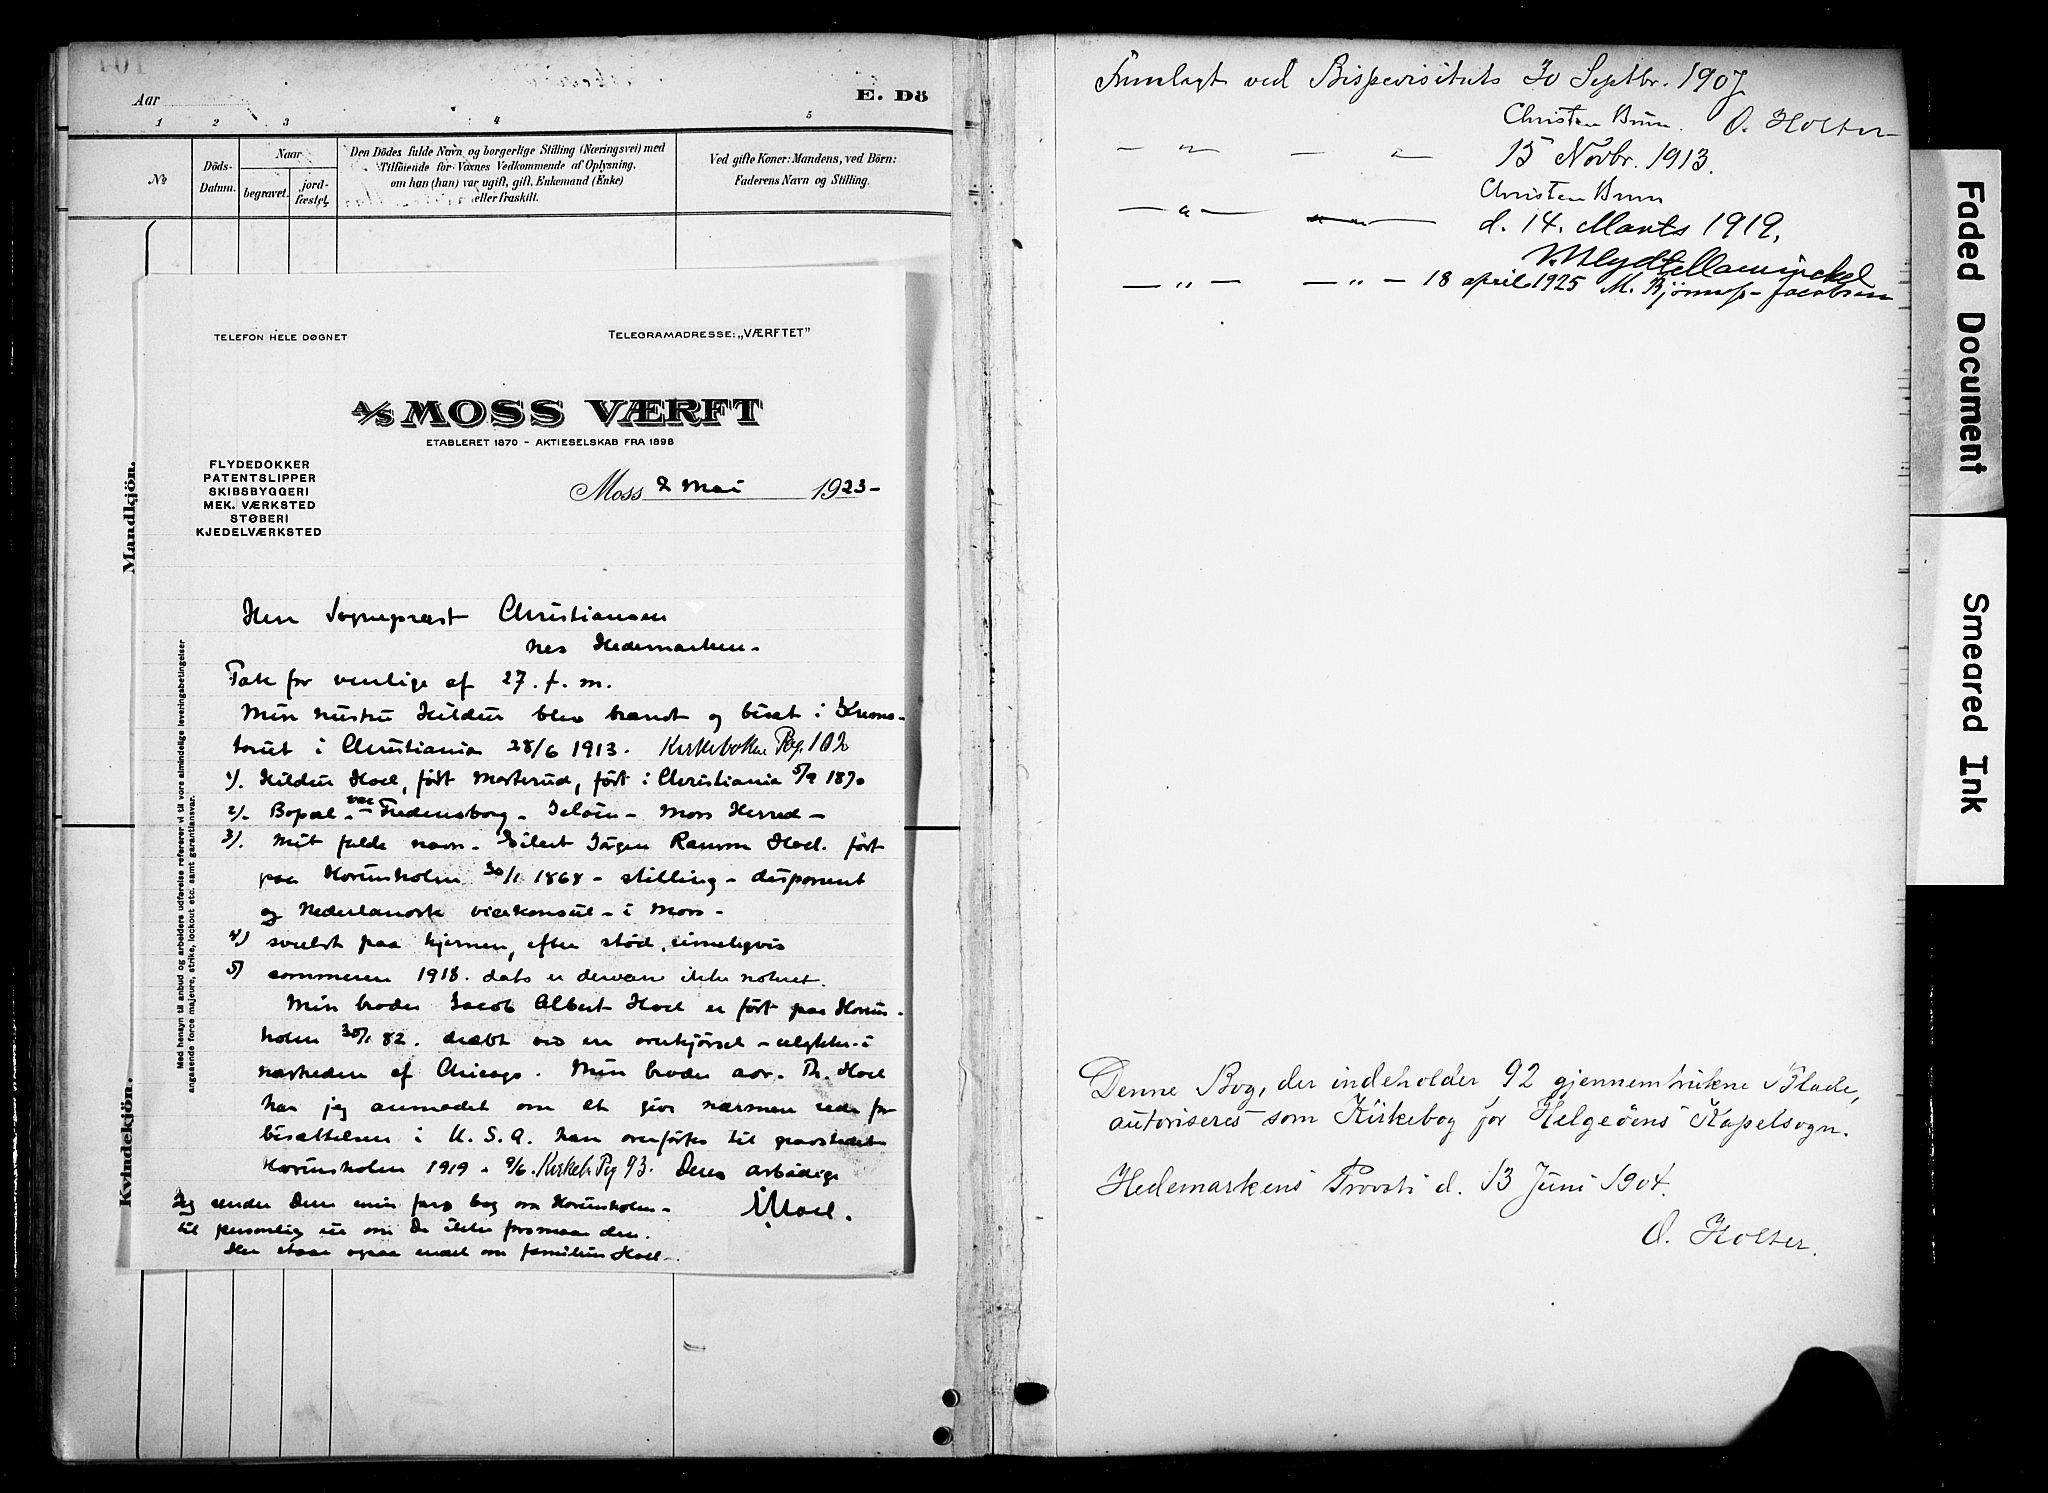 Aar
E. Dö
1
2
3
4
5
No
Döds-
Datum.
Naar
begravet.
jord-
fæstet.
Den Dödes fulde Navn og borgerlige Stilling (Næringsvei) med
Tilföiende for Voxnes Vedkommende af Oplysning,
om han (hun) var ugift, gift, Enkemand (Enke)
eller fraskilt.
Ved gifte Koner: Mandens, ved Börn:
Faderens Navn og Stilling.
Mandkjön.
Kvindekjön.
TELEFON HELE DØGNET
TELEGRAMADRESSE: „VÆRFTET"
A/S MOSS VÆRFT
ETABLERET 1870 - AKTIESELSKAB FRA 1898
FLYDEDOKKER
PATENTSLIPPER
SKIBSBYGGERI
MEK. VÆRKSTED
STØBERI
KJEDELVÆRKSTED
Moss 2 Mai 1923-
Med hensyn til anbud og arbeiders utførelse refererer vi til vore almindelige leveringsbetingelser
angaaende force majeure, strike, lockout etc. samt garantiansvar.
Herr Sogneprest Christiansen
Nes Hedemarken.
Tak for venlige af 27. f. m.
Min hustru Hildur blev brændt og bisat i Krema-
toriet i Christiania 28/6 1913. Kirkeboken Pag. 102
1). Hildur Hoel, født Marterud, født i Christiania 5/9 1870
2). Bopæl var Fredensborg - Jeløen - Moss Herred -
3). Mit fulde navn - Eilert Jörgen Hoel. født
paa Hovinsholm 30/1 1868 - stilling - disponent
og Nederlandsk vicekonsul - i Moss -
4) svulst paa hjernen, efter stød, rimeligvis
5) sommeren 1918. dato er desværre ikke noteret.
Min broder Jacob Albert Hoel er født paa Hovins-
holm 30/1 82. dræbt ved en overkjørsel - ulykke - i
nærheden af Chicago. Min broder adv. Th. Hoel
har jeg anmodet om at give nærmere rede for
bisættelsen i U. S. A. han overførtes til gravstedet
Hovinsholm 1919 - 9/6. Kirkeb. Pag 93. Deres ærbødige
Jeg sender Dem min fars bog om Hovinsholm - E Hoel.
til personlig eie om De ikke forsmaar den.
Her staar ogsaa endel om familien Hoel -.
Fremlagt ved Bispevisitats 30 Septbr. 1907
Christen Brun. O. Holter
— " — — " — 15 Novbr. 1913.
Christen Brun
— " — — " — d. 14. Marts 1919.
— " — — " — 18 april 1925 M. Bjønnes-Jacobsen
Denne Bog, der indeholder 92 gjennemtrukne Blade,
autoriseres som Kirkebog for Helgeöens Kapelsogn.
Hedemarkens Provsti d. 13 Juni 1904.
O. Holter.
Faded Document
Smeared Ink